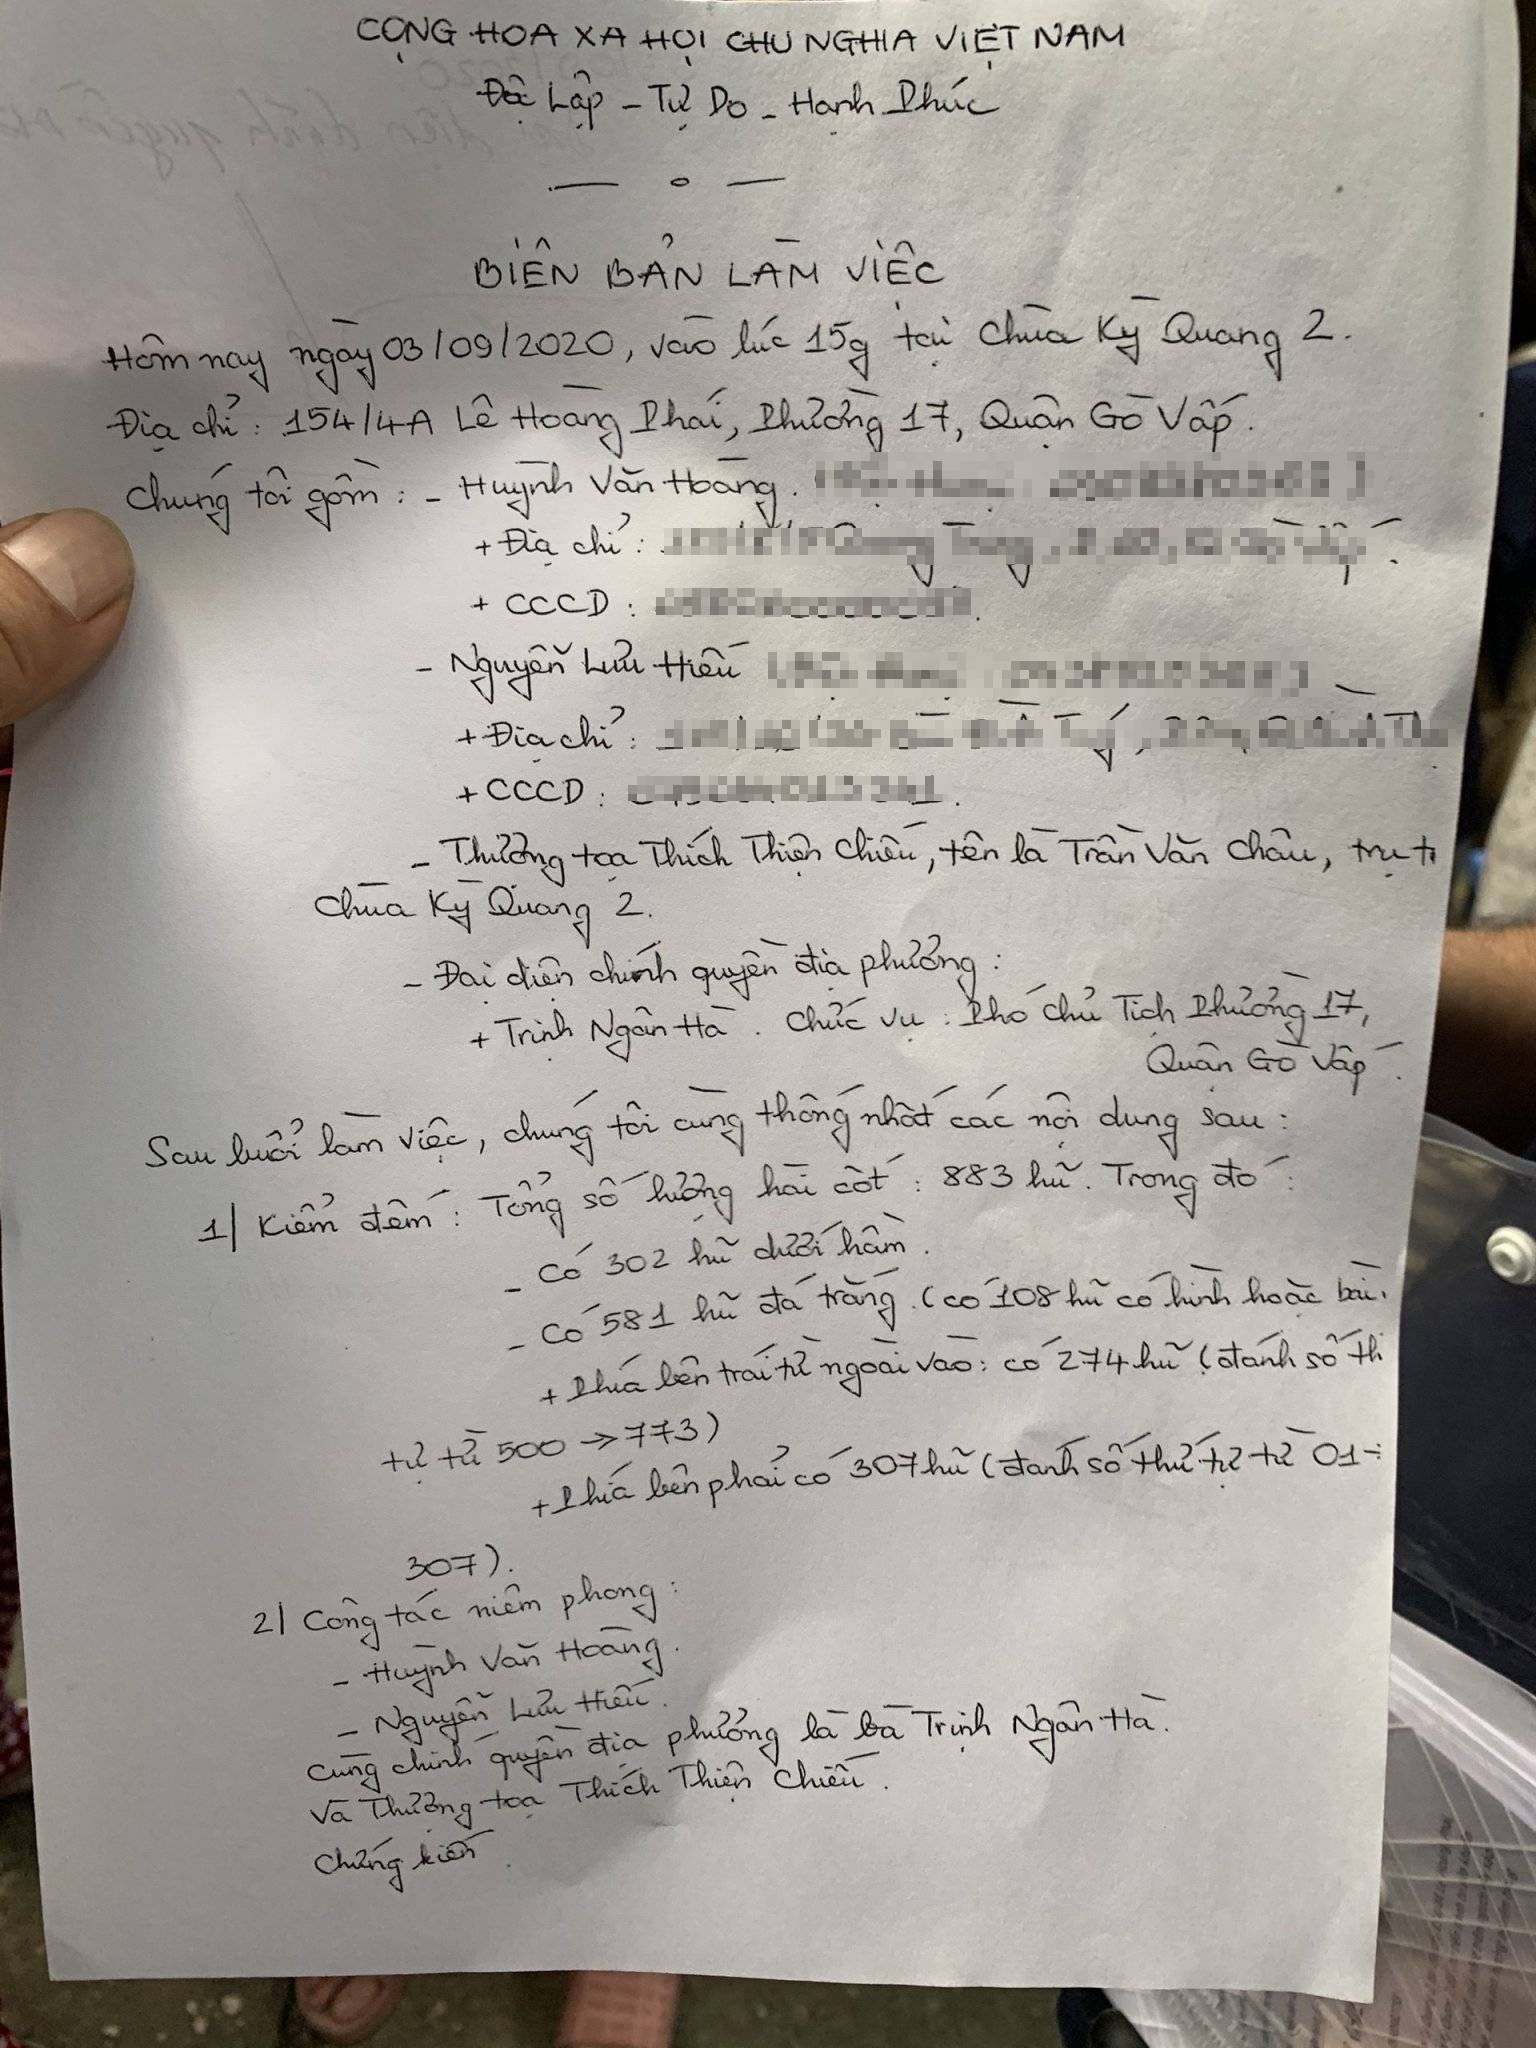 CỘNG HOA XA HỘI CHU NGHIA VIỆT NAM
Độc Lập - Tự Do - Hạnh Phúc
BIÊN BẢN LÀM VIỆC
Hôm nay ngày 03/09/2020, vào lúc 15g tại Chùa Kỳ Quang 2.
Địa chỉ: 154/4A Lê Hoàng Phái, Phường 17, Quận Gò Vấp.
Chúng tôi gồm: - Huỳnh Văn Hoàng.
+ Địa chỉ:
+ CCCD:
- Nguyễn Lưu Hiếu
+ Địa chỉ:
+ CCCD:
- Thượng tọa Thích Thiện Chiếu, tên là Trần Văn Châu, trụ
Chùa Kỳ Quang 2.
- Đại diện chính quyền địa phương:
+ Trịnh Ngân Hà. Chức vụ: Phó chủ Tịch Phường 17,
Quận Gò Vấp.
Sau buổi làm việc, chúng tôi cùng thống nhất các nội dung sau:
1/ Kiểm đếm: Tổng số lượng hài cốt: 883 hũ. Trong đó:
- Có 302 hũ dưới hầm.
- Có 581 hũ đá trắng. (có 108 hũ có hình hoặc bài.
+ Phía bên trái từ ngoài vào: có 274 hũ (đánh số th
tự từ 500 → 773)
+ Phía bên phải có 307 hũ (đánh số thứ tự từ 01 -
307).
2/ Công tác niêm phong:
- Huỳnh Văn Hoàng.
- Nguyễn Lưu Hiếu.
Cùng chính quyền địa phương là bà Trịnh Ngân Hà.
Và Thượng tọa Thích Thiện Chiếu.
Chứng kiến